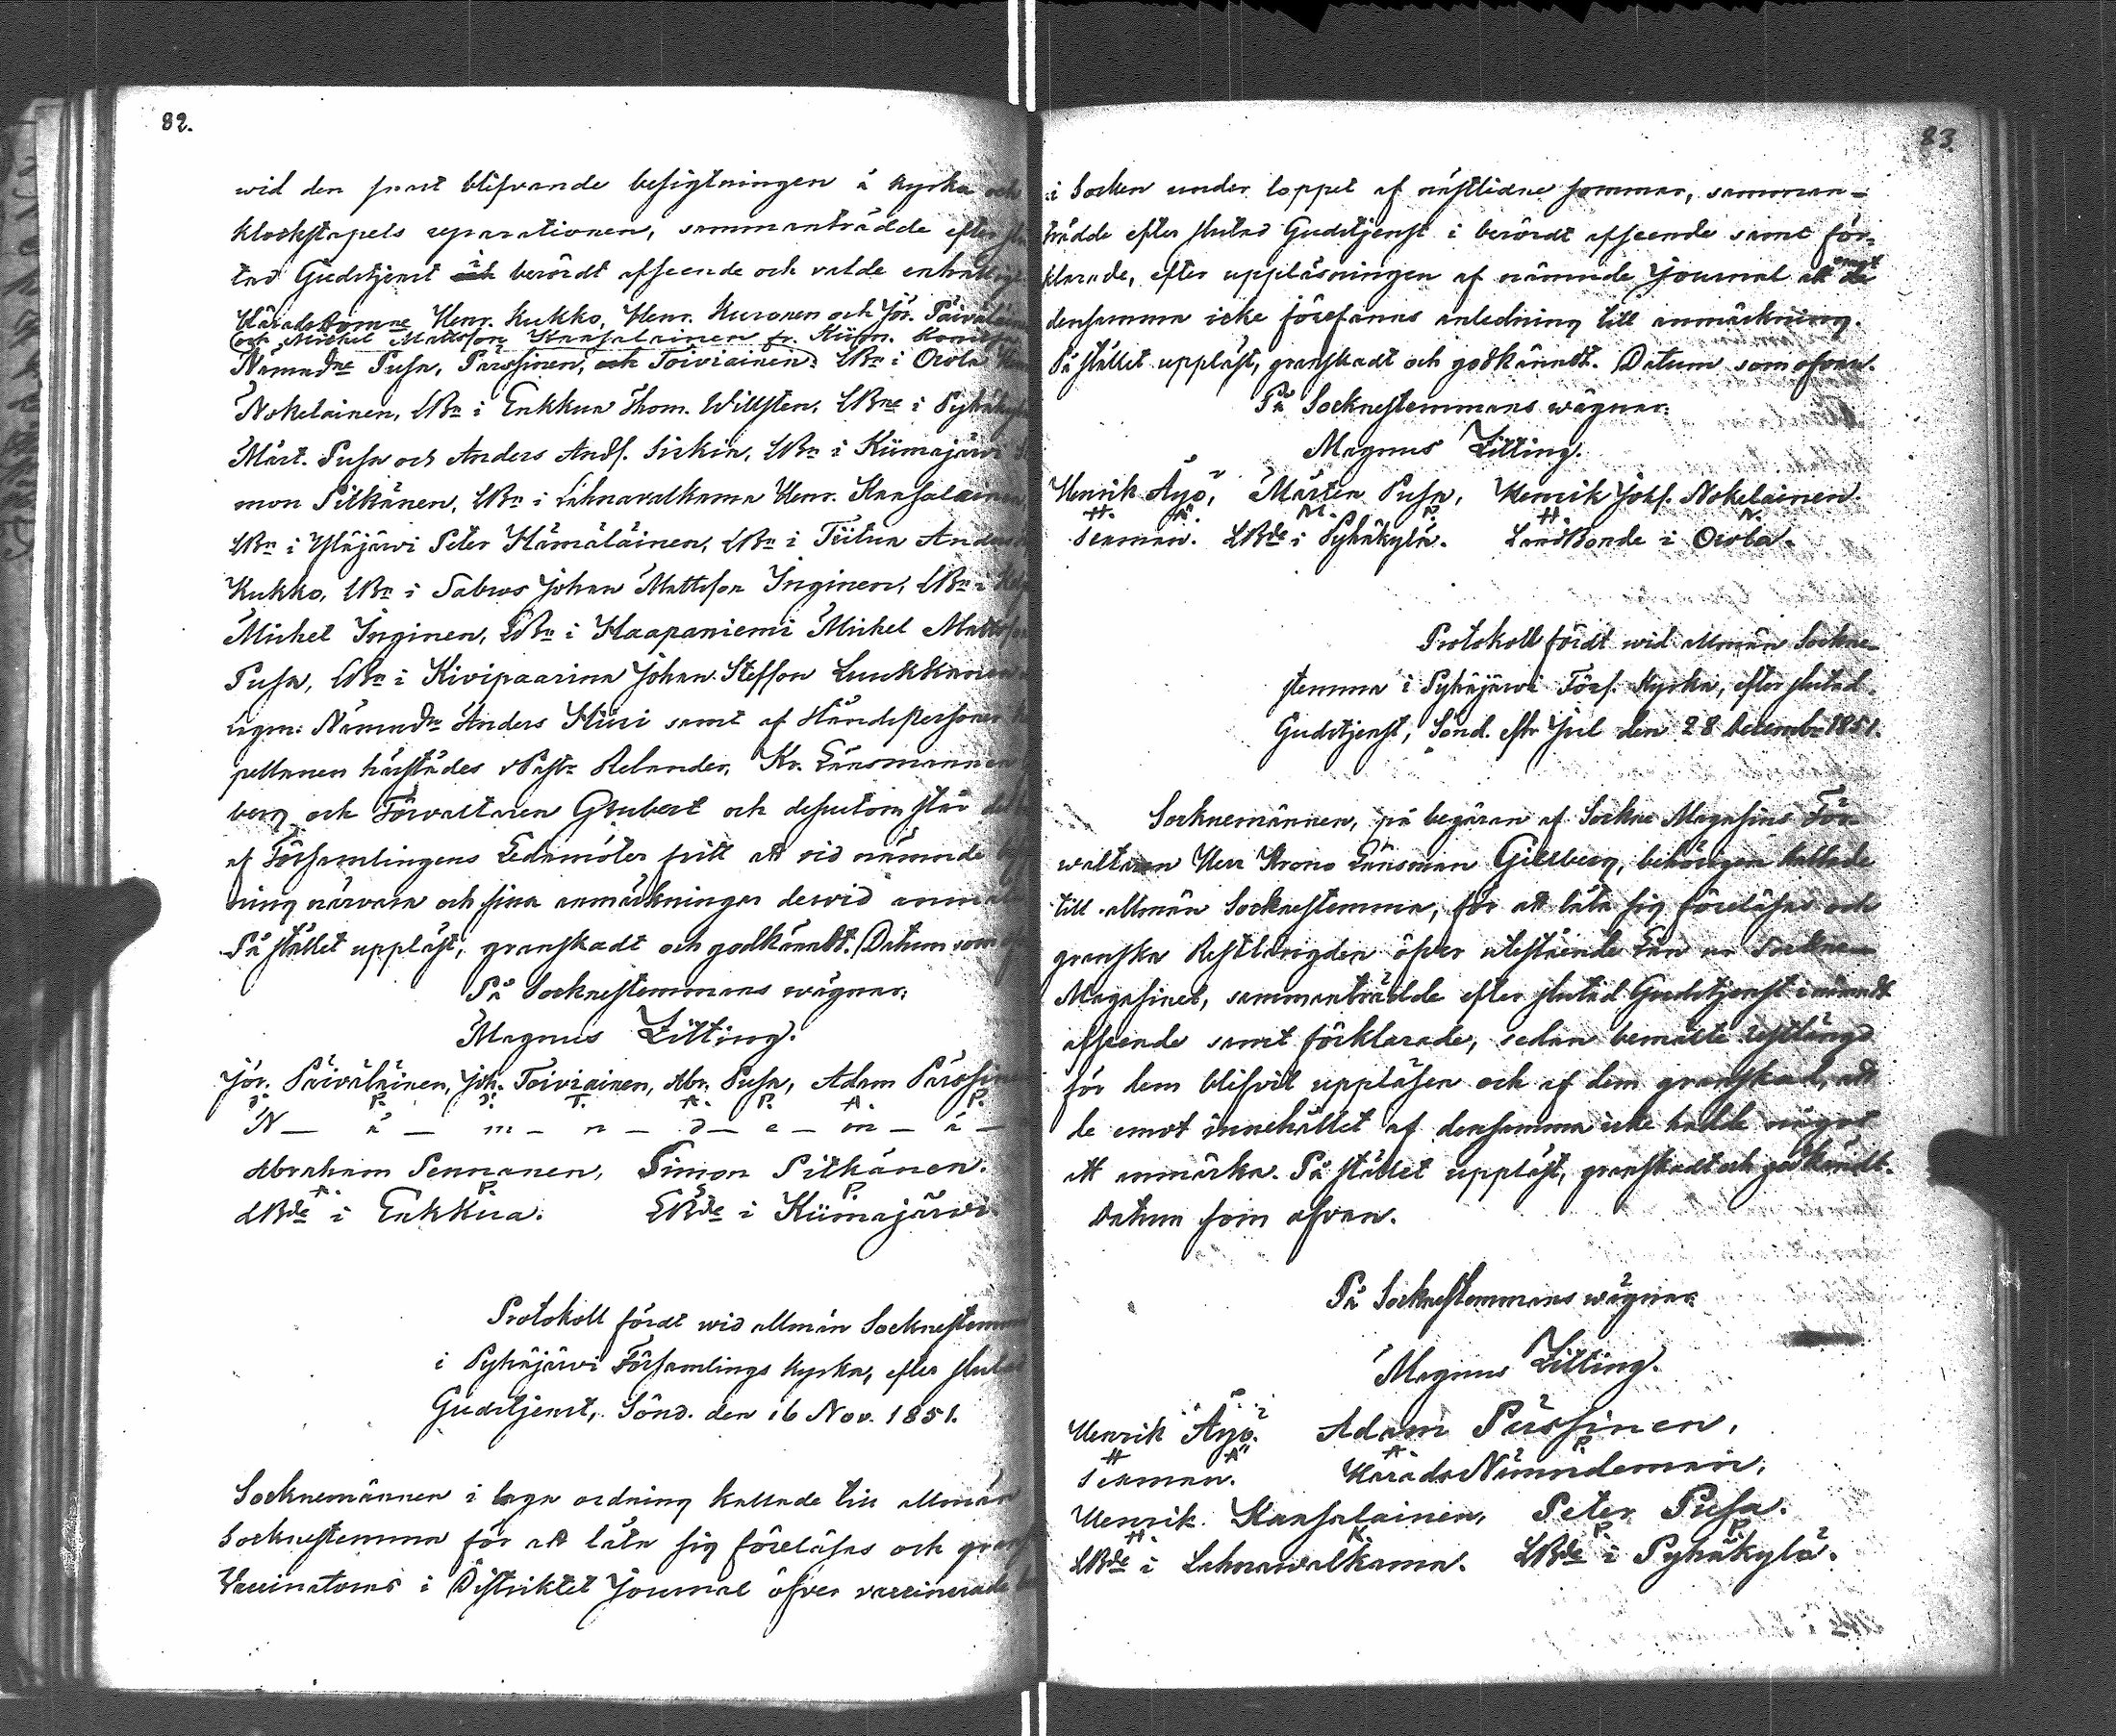 82.
wid den snart blifvande besigtningen å kyrko och
klockstapels reparationen, sammanträdde efter slu
tad Gudstjenst i berördt afseende och valde enhälligt
Häradsdomne Henr. Kukko, Henr. Kuronen och Jör. Päiväläinen
och Michel Mattsson Kansalainen fr.
Nämndne Pusa, Pärssinen, och Toiviainen: LBn i Orola
Nokelainen, LBn i Enkkua Thom. Willsten, LBne i Pyhäkylä
Mårt. Pusa och Anders Ands. Sirkiä, LBn i Kiimajärvi Si
mon Pitkänen, LBn i Lahnavalkama Henr. Kansalainen,
LBn i Yläjärvi Peter Hämäläinen, LBn i Tiitua Anders
Kukko, LBn i Salvos Johan Mattsson Inginen, LBn i
Michel Inginen, LBn i Haapaniemi Michel Mattsson
Pusa, LBn i Kivipaarina Johan Steffson Luukkanen
ägm: Nämndn Anders Hiiri samt af Ståndspersoner
pellanen härstädes vPastr Relander, Kr. Länsmannen
berg och Förvaltaren Grubert och dessutom står det
af Församlingens Ledamöter fritt att vid nämnde
ning närvara och sina anmärkningar dervid anmäla
På stället uppläst, granskadt och godkändt. Datum som
På Socknestemmans wägnar:
Magnus Zitting.
Jör. Päiväläinen, Joh. Toiviainen, Abr. Pusa, Adam Pärssinen
J. P. J. T. A. P. A. P.
N — ä — m — n — d — e — m — ä —
Abraham Pennanen, Simon Pitkänen.
A. P. S. P.
LBde i Enkkua. LBde i Kiimajärvi.
Protokoll fördt wid allmän Socknestemma
i Pyhäjärvi Församlings kyrka, efter slutad
Gudstjenst, Sönd. den 16 Nov. 1851.
Socknemännen i laga ordning kallade till allmän
Socknestemma för att låta sig föreläsas och granska
Vaccinatorns i Distriktet Journal öfver vaccinerade
83.
i Socken under loppet af nästlidne sommar, samman-
trädde efter slutad Gudstjenst i berördt afseende samt för-
klarade, efter uppläsningen af nämnde Journal att de emot
densamma icke förefanns anledning till anmärkning.
På stället uppläst, granskadt och godkänndt. Datum som ofvan.
På Socknestemmans wägnar:
Magnus Zitting.
Henrik Äyö, Mårten Pusa, Henrik Johs. Nokelainen.
H. Ä. M. P. H. N.
Sexman. LBde i Pyhäkylä. LandBonde i Orola.
Protokoll fördt wid allmän Sockne-
stemma i Pyhäjärvi Förs. Kyrka, efter slutad
Gudstjenst, Sönd. eftr Jul den 28 Decembr 1851.
Socknemännen, på begäran af Sockne Magasins För-
waltaren Herr Krono Länsman Gillberg, behörigen kallade
till allmän Socknestemma, för att låta sig föreläsas och
granska Restlängden öfver utestående Lån ur Sockne-
Magasinet, sammanträdde efter slutad Gudstjenst i nämndt
afseende samt förklarade, sedan bemälte restlängd
för dem blifvit uppläsen och af dem granskad, att
de emot innehållet af densamma icke hade något
att anmärka. På stället uppläst, granskadt och godkändt.
Datum som ofvan.
På Socknestemmans wägnar:
Magnus Zitting.
Henrik Äyö. Adam Pärssinen,
H. Ä. A. P.
Sexman. HäradsNämndeman.
Henrik Kansalainen, Peter Pusa.
H. K. P. P.
LBde i Lahnawalkama. LBde i Pyhäkylä.